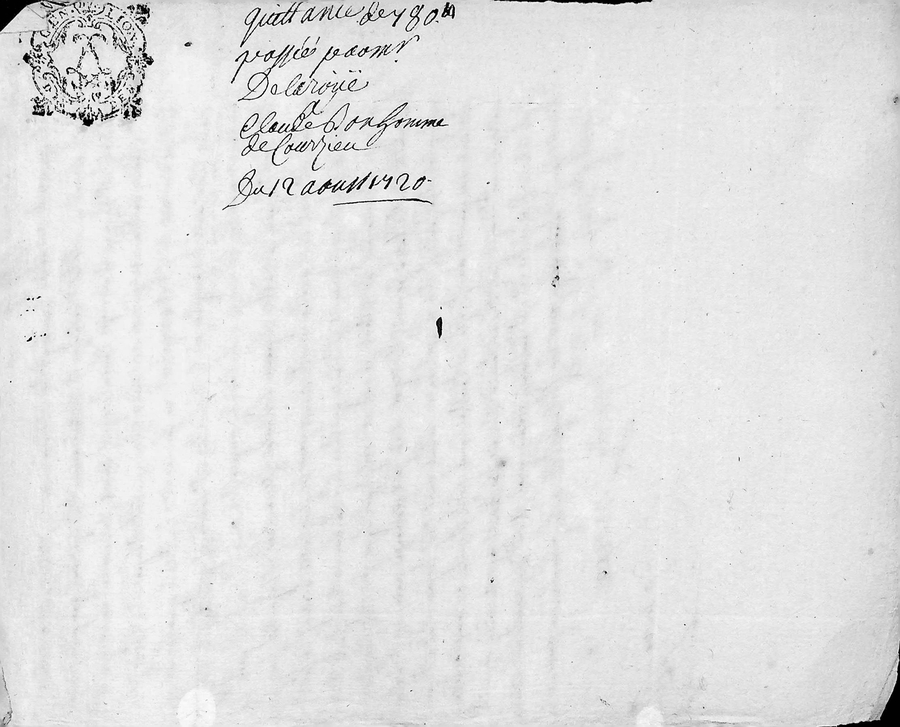 GEN LION
quittance de 780 ₶
passée par mr
Delaroüe
Claude Bonhomme
de Courzieu
Du 12 aoust 1720